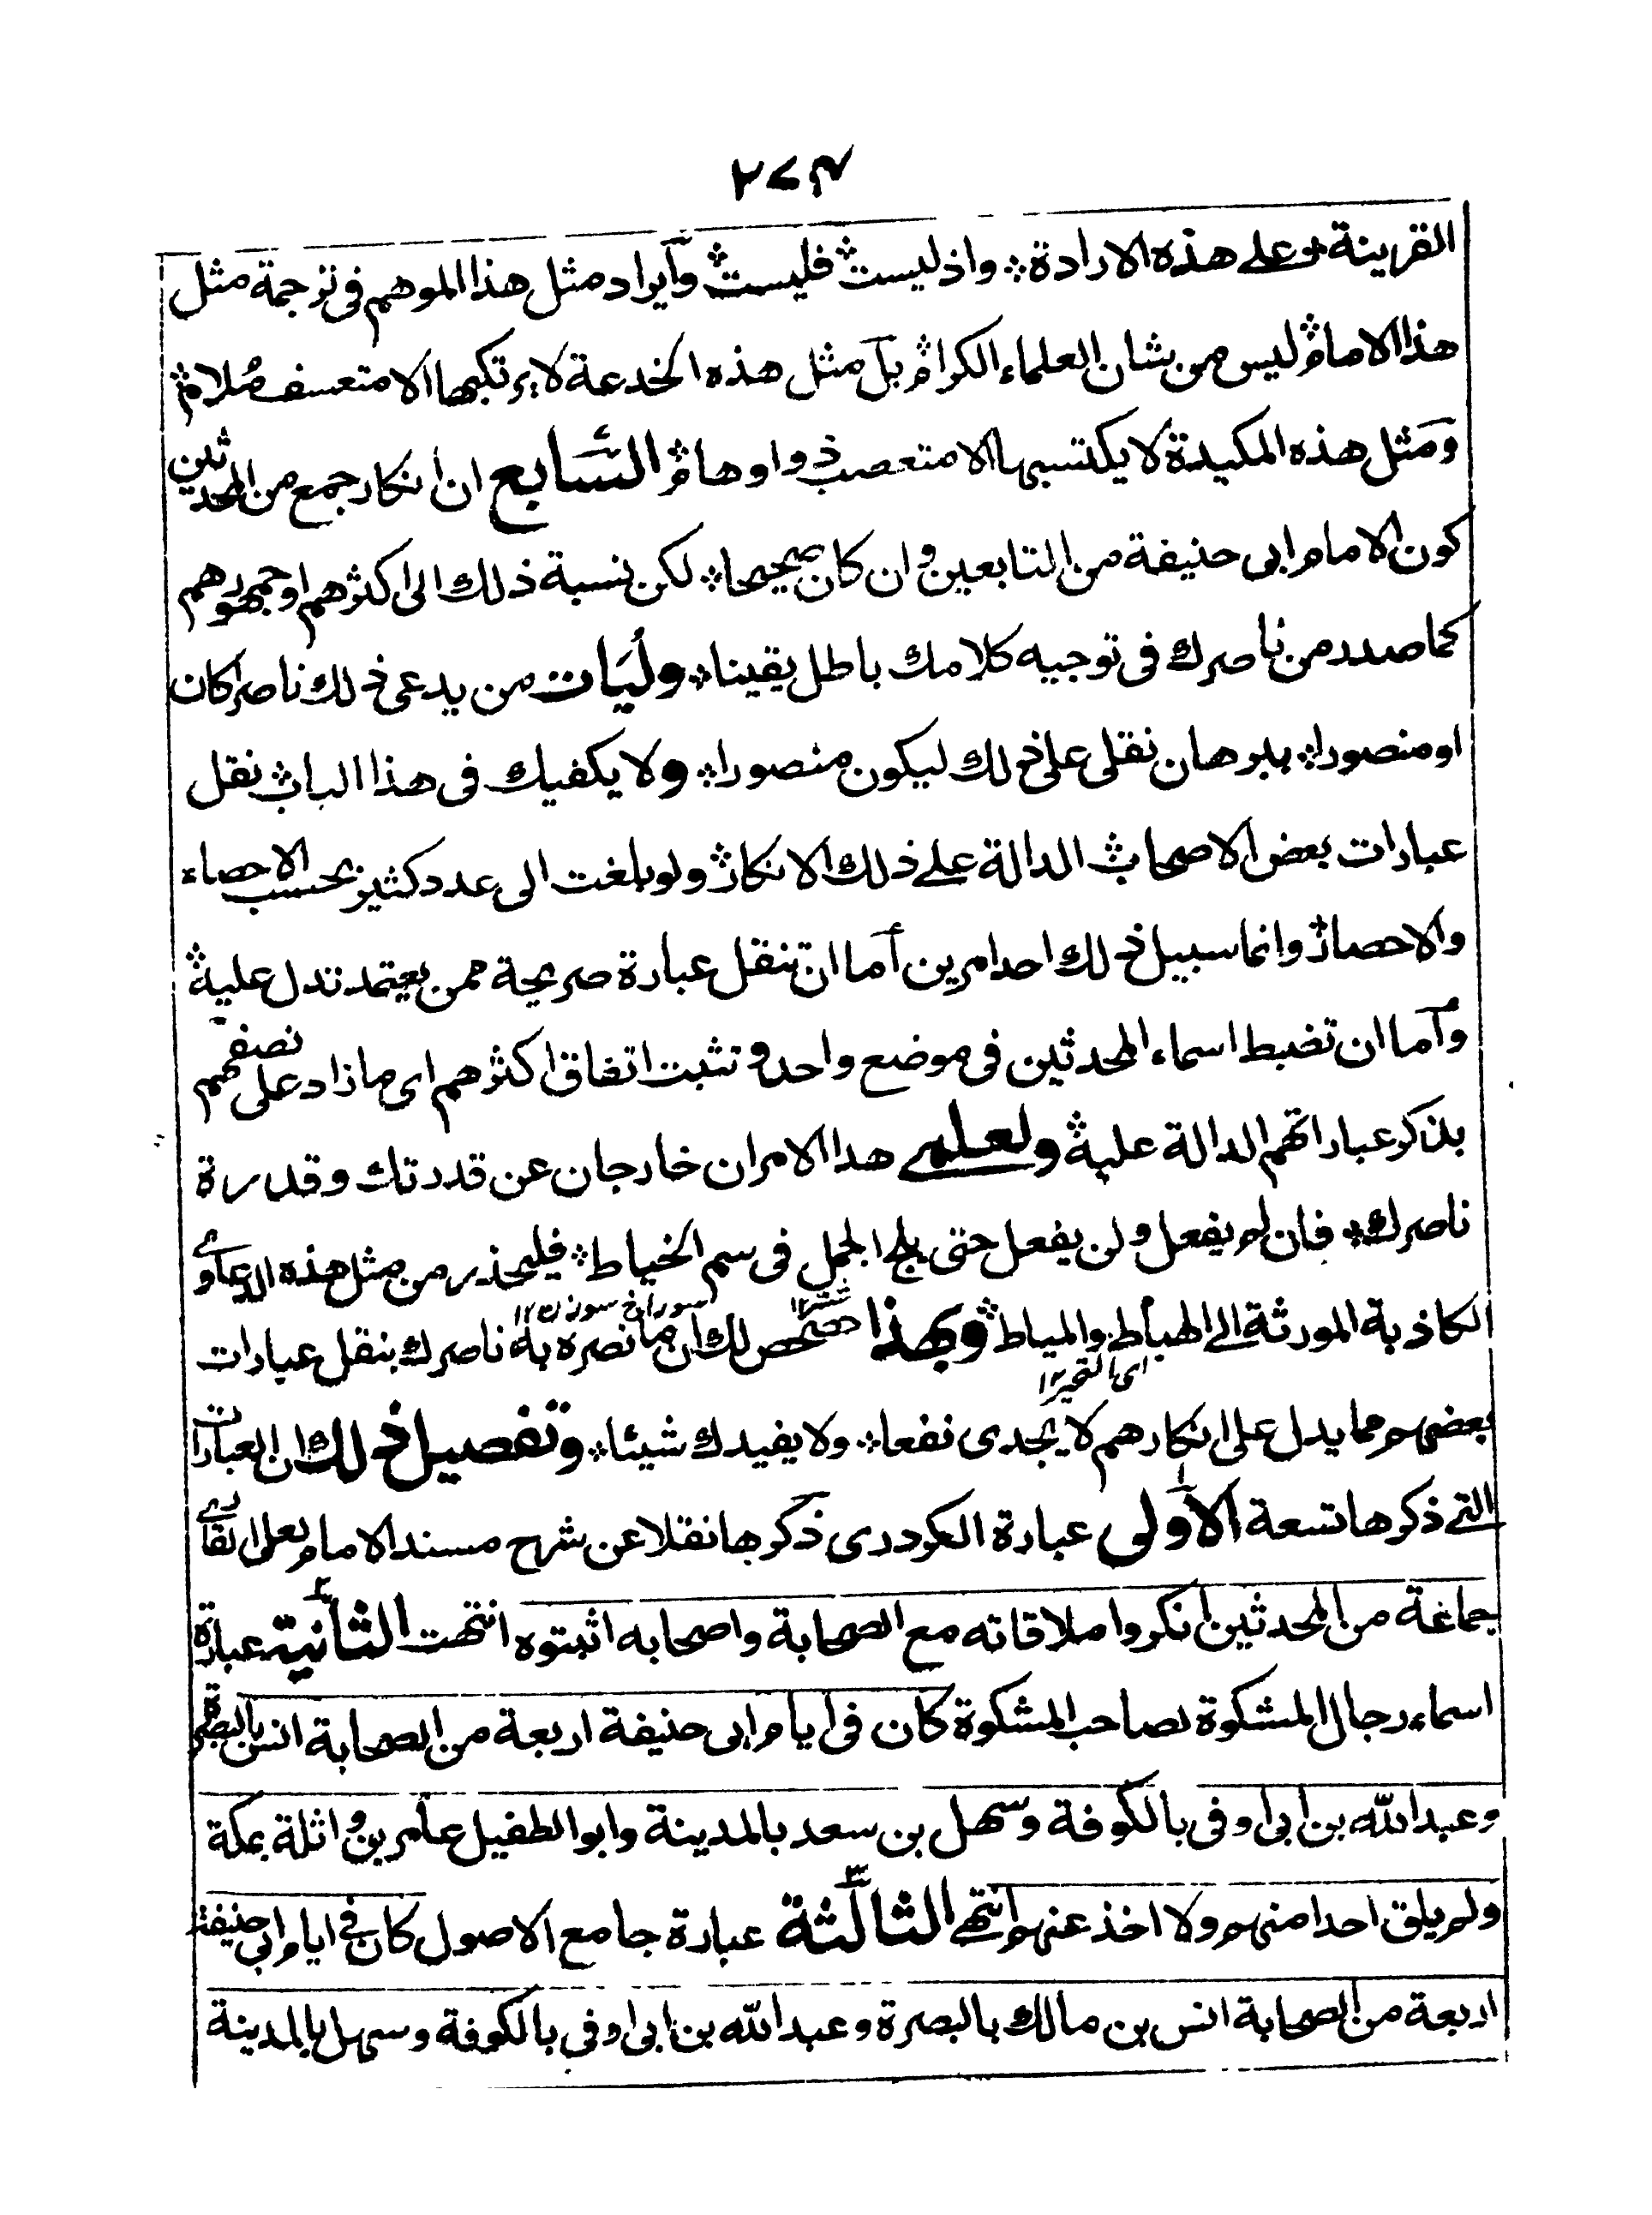 ٢٧٤
القرينة ؞ على هذه الارادة ؞ واذ ليست ؞ فليست ؞ وايراد مثل هذا الموهم فى ترجمة مثل
هذا الامام ؞ ليس من شان العلماء الكرام ؞ بل مثل هذه الخدعة لا يرتكبها الا متعسف ملام ؞
ومثل هذه المكيدة لا يكتسبها الا متعصب ذو اوهام ؞ السابع ان انكار جمع من المحدثين
كون الامام ابى حنيفة من التابعين وان كان صحيحا ؞ لكن نسبة ذلك الى اكثرهم او جمهورهم
كما صدر من ناصرك فى توجيه كلامك باطل يقينا ؞ وليات من يدعى ذلك ناصرا كان
او منصورا ؞ ببرهان نقلى على ذلك ليكون منصورا ؞ ولا يكفيك فى هذا الباب ؞ نقل
عبارات بعض الاصحاب ؞ الدالة على ذلك الانكار ؞ ولو بلغت الى عدد كثير بحسب الاحصاء
والاحصار ؞ وانما سبيل ذلك احد امرين أما ان تنقل عبارة صريحة ممن يعتمد تدل عليه ؞
وأما ان تضبط اسماء المحدثين فى موضع واحد وتثبت اتفاق اكثرهم اى ما زاد على نصفهم
بذكر عباراتهم الدالة عليه ؞ ولعلى هذا الامران خارجان عن قدرتك وقدرة
ناصرك ؞ فان لم يفعل ولن يفعل حتى يلج الجمل فى سم الخياط ؞ فليحذر من مثل هذه الدعاوى
سوراخ سوزن ١٢
الكاذبة المورثة الى الهباط والمياط ؞ وبهذا حصحص لك ان ما نصره به ناصرك بنقل عبارات
اى التحير ١٢
بعضهم مما يدل على انكارهم لا يجدى نفعا ؞ ولا يفيدك شيئا ؞ وتفصيل ذلك ان العبارات
التى ذكرها تسعة الاولى ١ عبارة الكردرى ذكرها نقلا عن شرح مسند الامام لعلى القارى
جماعة من المحدثين انكروا ملاقاته مع الصحابة واصحابه اثبتوه انتهت الثانية ٢ عبارة
اسماء رجال المشكوة لصاحب المشكوة كان فى ايام ابى حنيفة اربعة من الصحابة انس بالبصرة
وعبد الله بن ابى اوفى بالكوفة وسهل بن سعد بالمدينة وابو الطفيل عامر بن واثلة بمكة
ولم يلق احدا منهم ولا اخذ عنهم انتهى الثالثة ٣ عبارة جامع الاصول كان فى ايام ابى حنيفة
اربعة من الصحابة انس بن مالك بالبصرة وعبد الله بن ابى اوفى بالكوفة وسهل بالمدينة